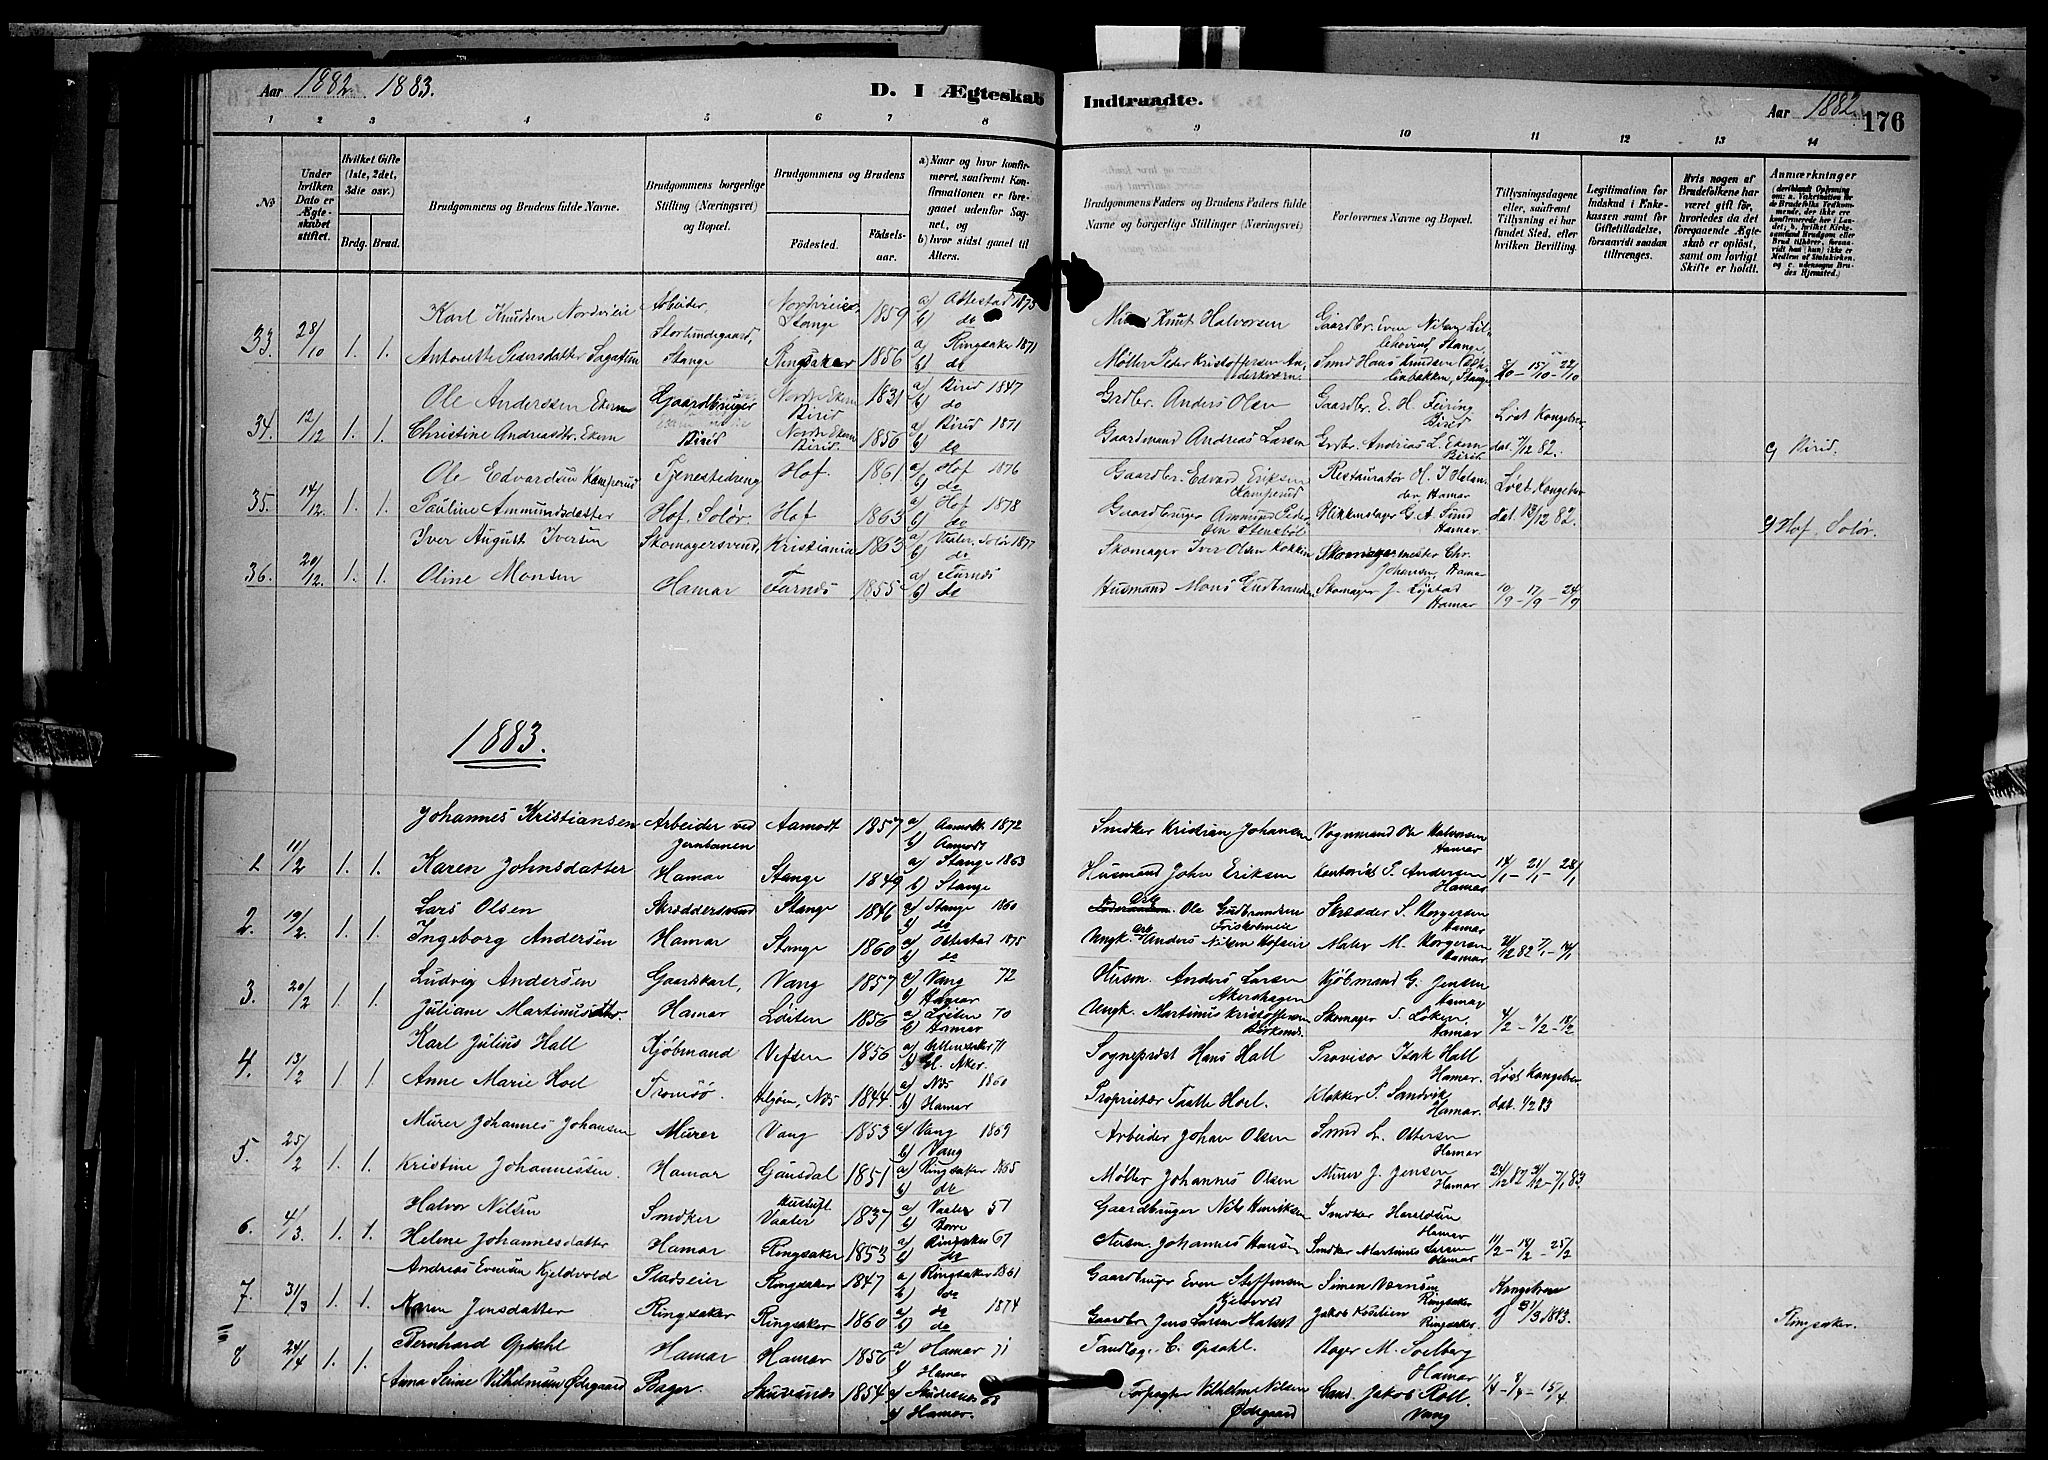 Aar 1882. 1883.
D. I Ægteskab
Indtraadte.
Aar 1882.
176
1 2 3 4 5 6 7 8 9 10 11 12 13 14
No
Under hvilken Dato er Ægteskabet stiftet.
Hvilket Gifte (1ste, 2det, 3die osv.)
Brdg. Brud.
Brudgommens og Brudens fulde Navne.
Brudgommens borgerlige Stilling (Næringsvei) og Bopæl.
Brudgommens og Brudens
Fødested. Fødselsaar.
a) Naar og hvor konfirmeret, saafremt Konfirmationen er foregaaet udenfor Sognet, og
b) hvor sidst gaaet til Alters.
Brudgommens Faders og Brudens Faders fulde Navne og borgerlige Stillinger (Næringsvei)
Forlovernes Navne og Bopæl.
Tillysningsdagene eller, saafremt Tillysning ei har fundet Sted, efter hvilken Bevilling.
Legitimation for Indskud i Enkekassen samt for Giftetilladelse, forsaavidt saadan tiltrænges.
Hvis nogen af Brudefolkene har været gift før, hvorledes da det foregaaende Ægteskab er opløst, samt om lovligt Skifte er holdt.
Anmærkninger
33. 28/10 1. 1. Karl Knudsen Arbeider, Stange 1859 a) Ottestad 1873 b) do Knut Halvorsen Gaardbr. Even
Antonette Pedersdatter Stange Ringsaker 1856 a) Ringsaker 1871 b) do Møller Peder Kristoffersen Smed Hans Knudsen Stange 8/10 – 15/10 – 22/10
34. 12/12 1. 1. Ole Anderssen Ekern Gaardbruger Nordre Ekern Birid 1831 a) Birid 1847 b) do Grdbr. Anders Olsen Gaardbr. E. H. Feiring Birid Løst Kongebr.
Christine Andreasdtr. Ekern Birid Nordre Ekern Birid. 1856 a) Birid 1871 b) do Gaardmand Andreas Larsen Grdbr. Andreas L. Ekern Birid dat. 7/12 82. c) Birid.
35. 14/12. 1. 1. Ole Edvardsen Kamperud Tjenestedreng Hof. 1861 a) Hof 1876 b) do Gaardbr. Edvard Eriksen Kamperud Restauratør H. Hamar Løst Kongebr.
Pauline Ammundsdatter Hof, Solør. Hof 1863 a) Hof 1878 b) do Gaardbruger Ammund Peder- Blikkenslager G. A. Lund Hamar dat. 13/12 82. c) Hof, Solør.
36. 20/12. 1. 1. Iver August Iversen Skomagersvend, Kristiania 1863 a) Vaaler, Solør 1877 b) do Skomager Iver Olsen Skomagermester Chr. Johansen, Hamar
Oline Monsen Hamar Furnes 1855 a) Furnes b) do Husmand Mons Gudbrandsen Skomager J. Hamar 10/9 – 17/9 – 24/9
1883.
1 11/2 1. 1. Johannes Kristiansen Arbeider ved Jernbanen Aamodt 1857 a) Aamodt 1872 b) Aamodt Snedker Kristian Johansen Vognmand Ole Halvorsen Hamar
Karen Johnsdatter Hamar Stange 1849 a) Stange 1863 b) Stange Husmand John Eriksen P. Andersen Hamar 14/1 – 21/1 – 28/1
2. 19/2. 1. 1. Lars Olsen Skræddersvend Stange 1846 a) Stange 1860 b) do Ole Gudbrandsen Skrædder S. Borgersen Hamar
Ingeborg Andersen Hamar Stange 1860 a) Ottestad 1875 b) do Ungk. Anders Nilsen Maler M. Borgersen Hamar 7/1 – 14/1
3. 20/2 1. 1. Ludvig Andersen Gaardskarl, Vang 1857 a) Vang 72 b) Hamar Husm. Anders Larsen Akershagen Kjøbmand G. Jensen Hamar
Juliane Martinusdtr. Hamar Løiten 1856 a) Løiten 70 b) Hamar Ungk. Martinus Kristoffersen Skomager S. Løken, Hamar 4/2 – 11/2 – 18/2
4. 13/2 1. 1. Karl Julius Hall Kjøbmand Vefsen 1856 a) Ullensaker 71 b) V. Aker. Sogneprest Hans Hall Provisor Isak Hall Hamar. Løst Kongebr.
Anne Marie Hoel Tromsø. Nes 1844 a) Nes 1860 b) Hamar Proprietær Hoel. Klokker P. Sandvik Hamar. dat. 1/2 83
5. 25/2 1. 1. Murer Johannes Johansen Murer Vang 1853 a) Vang 1869 b) Vang Arbeider Johan Olsen Smed L. Ottersen Hamar
Kristine Johannessen. Hamar Gausdal 1851 a) Ringsaker 1865 b) do Møller Johannes Olsen Murer J. Jensen Hamar 24/12 82 31/12 – 7/1 83
6. 4/3 1. 1. Halvor Nilsen Snedker Vaaler 1837 a) Vaaler 51 b) Borre Gaardbruger Nils Henriksen Snedker Haraldsen Hamar
Helene Johannesdatter Hamar Ringsaker 1853 a) Ringsaker 67 b) do Husm. Johannes Hansen Snedker Martinus Larsen Hamar 11/2 – 18/2 – 25/2
7. 31/3 1. 1. Andreas Evensen Kjeldvold Pladseier Ringsaker 1847 a) Ringsaker 1861 b) do Gaardbruger Even Steffensen Kjelvold Simen Ringsaker Kongebrev
Karen Jensdatter Ringsaker Ringsaker 1860 a) do 1874 b) do Gaardbr. Jens Larsen Jakob Ringsaker. 1883. Ringsaker.
8 24/4 1. 1. Bernhard Opsahl Hamar Hamar 1856 a) Hamar 71 b) Hamar Tandlæge C. Opsahl. Bager M. Solberg Hamar
Anna Vilhelmsen Ødegaard Bager. 1854 a) 68 b) Hamar. Forpagter Vilhelm Nilsen Ødegaard Jakob Roll Vang 1/4 – 8/4 – 15/4